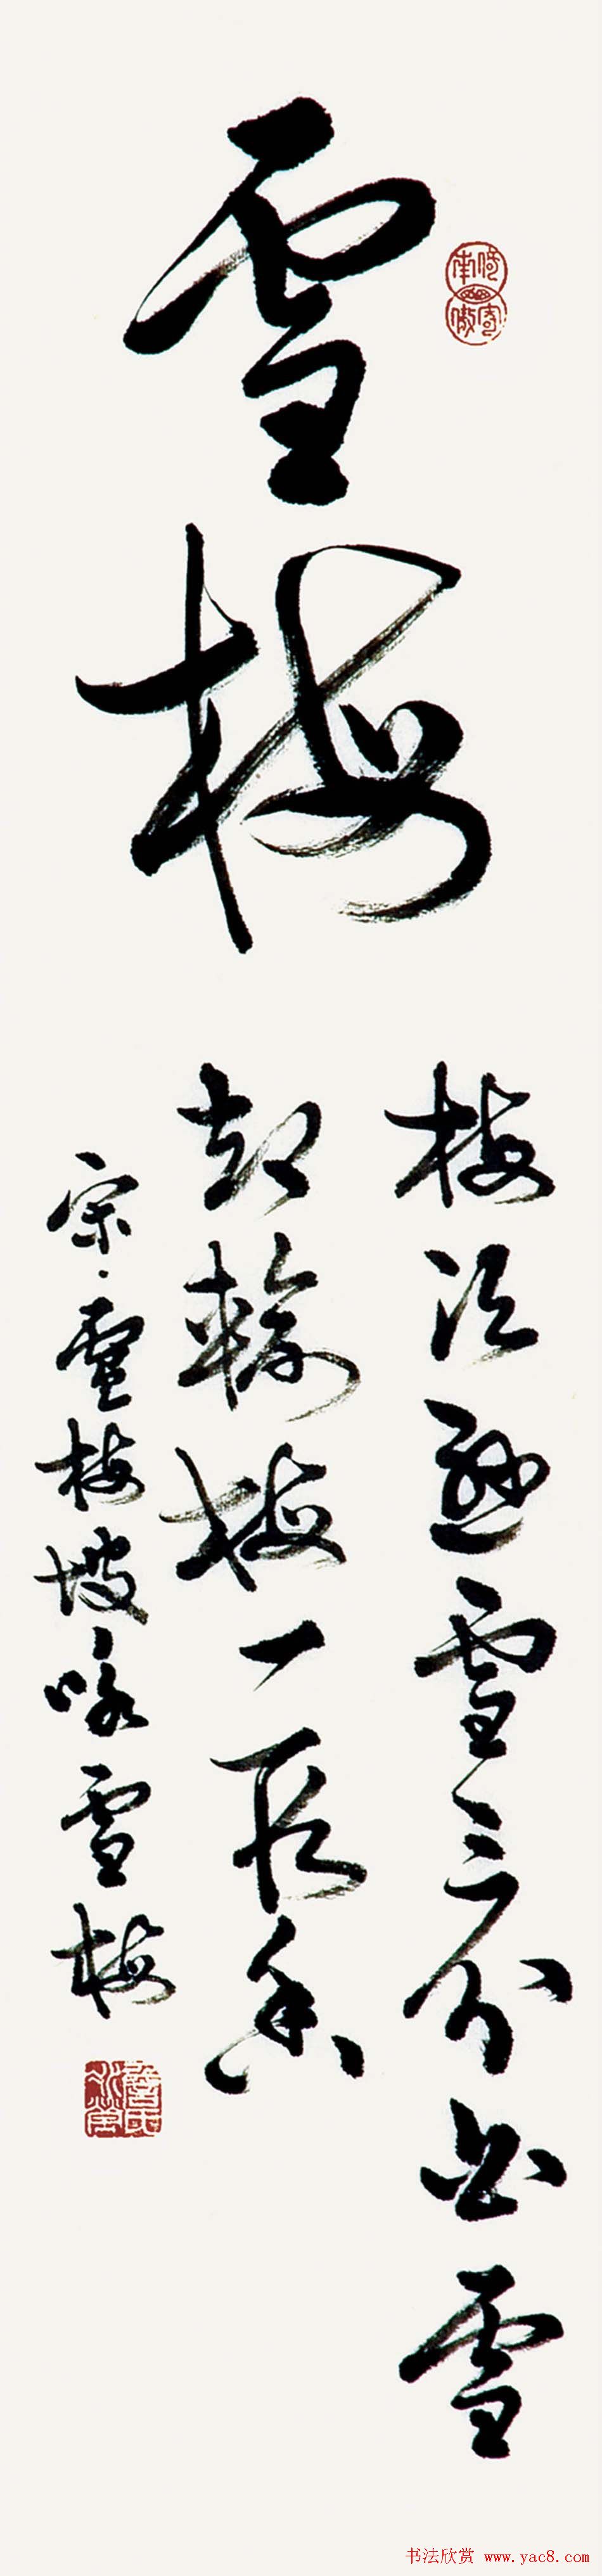 雪梅
梅须遜雪三分白雪
却輸梅一段香
宋·盧梅坡咏雪梅
书法欣赏 www.yac8.com